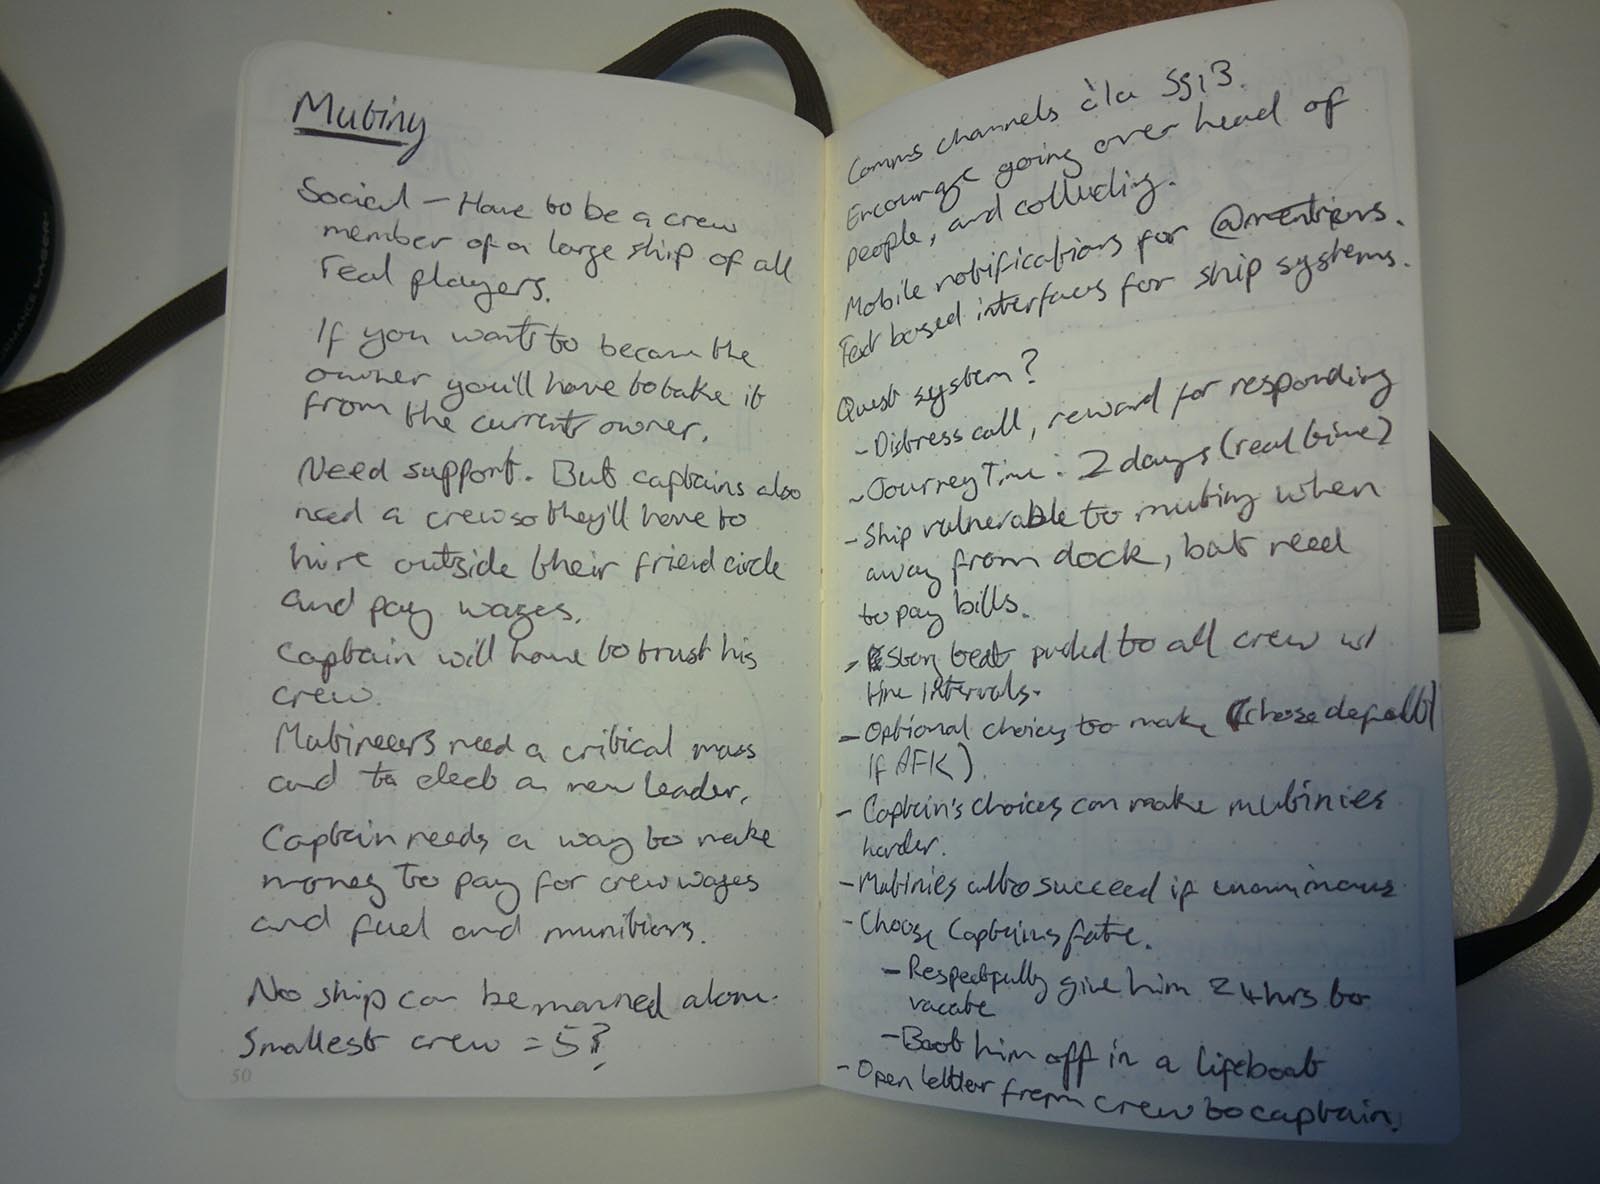 Mutiny
Social – Have to be a crew
member of a large ship of all
real players.
If you want to become the
owner you'll have to take it
from the current owner.
Need support. But captains also
need a crew so they'll have to
hire outside their friend circle
and pay wages.
Captain will have to trust his
crew.
Mutineers need a critical mass
and to elect a new leader.
Captain needs a way to make
money to pay for crew wages
and fuel and munitions.
No ship can be manned alone.
Smallest crew = 5?
50
Comms channels à la SS13.
Encourage going over head of
people, and colluding.
Mobile notifications for @mentions.
Text based interfaces for ship systems.
Quest system?
- Distress call, reward for responding
- Journey Time: 2 days (real time)
- Ship vulnerable to mutiny when
away from dock, but need
to pay bills.
- Story beat pushed to all crew w/
time intervals.
- Optional choices to make (chose default
if AFK)
- Captain's choices can make mutinies
harder.
- Mutinies succeed if unanimous
- Choose Captains fate.
- Respectfully give him 24hrs to
vacate
- Boot him off in a lifeboat
- Open letter from crew to captain.